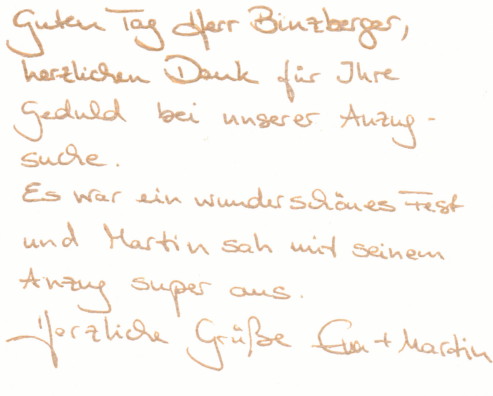 Guten Tag Herr Binzberger,
herzlichen Dank für Ihre
Geduld bei unserer Anzug-
suche.
Es war ein wunderschönes Fest
und Martin sah mit seinem
Anzug super aus.
Herzliche Grüße Eva + Martin